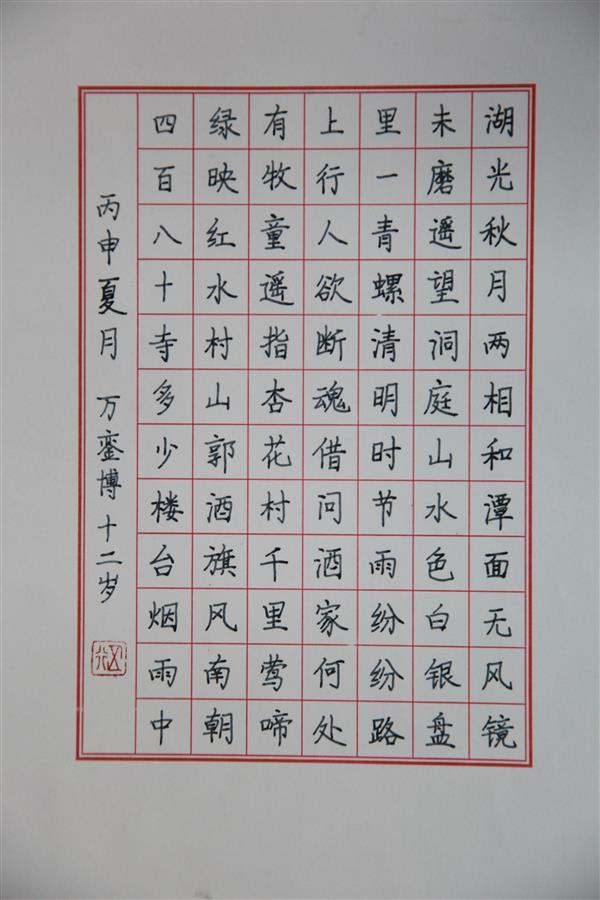 湖光秋月两相和潭面无风镜
未磨遥望洞庭山水色白银盘
里一青螺清明时节雨纷纷路
上行人欲断魂借问酒家何处
有牧童遥指杏花村千里莺啼
绿映红水村山郭酒旗风南朝
四百八十寺多少楼台烟雨中
丙申夏月 万銮博十二岁